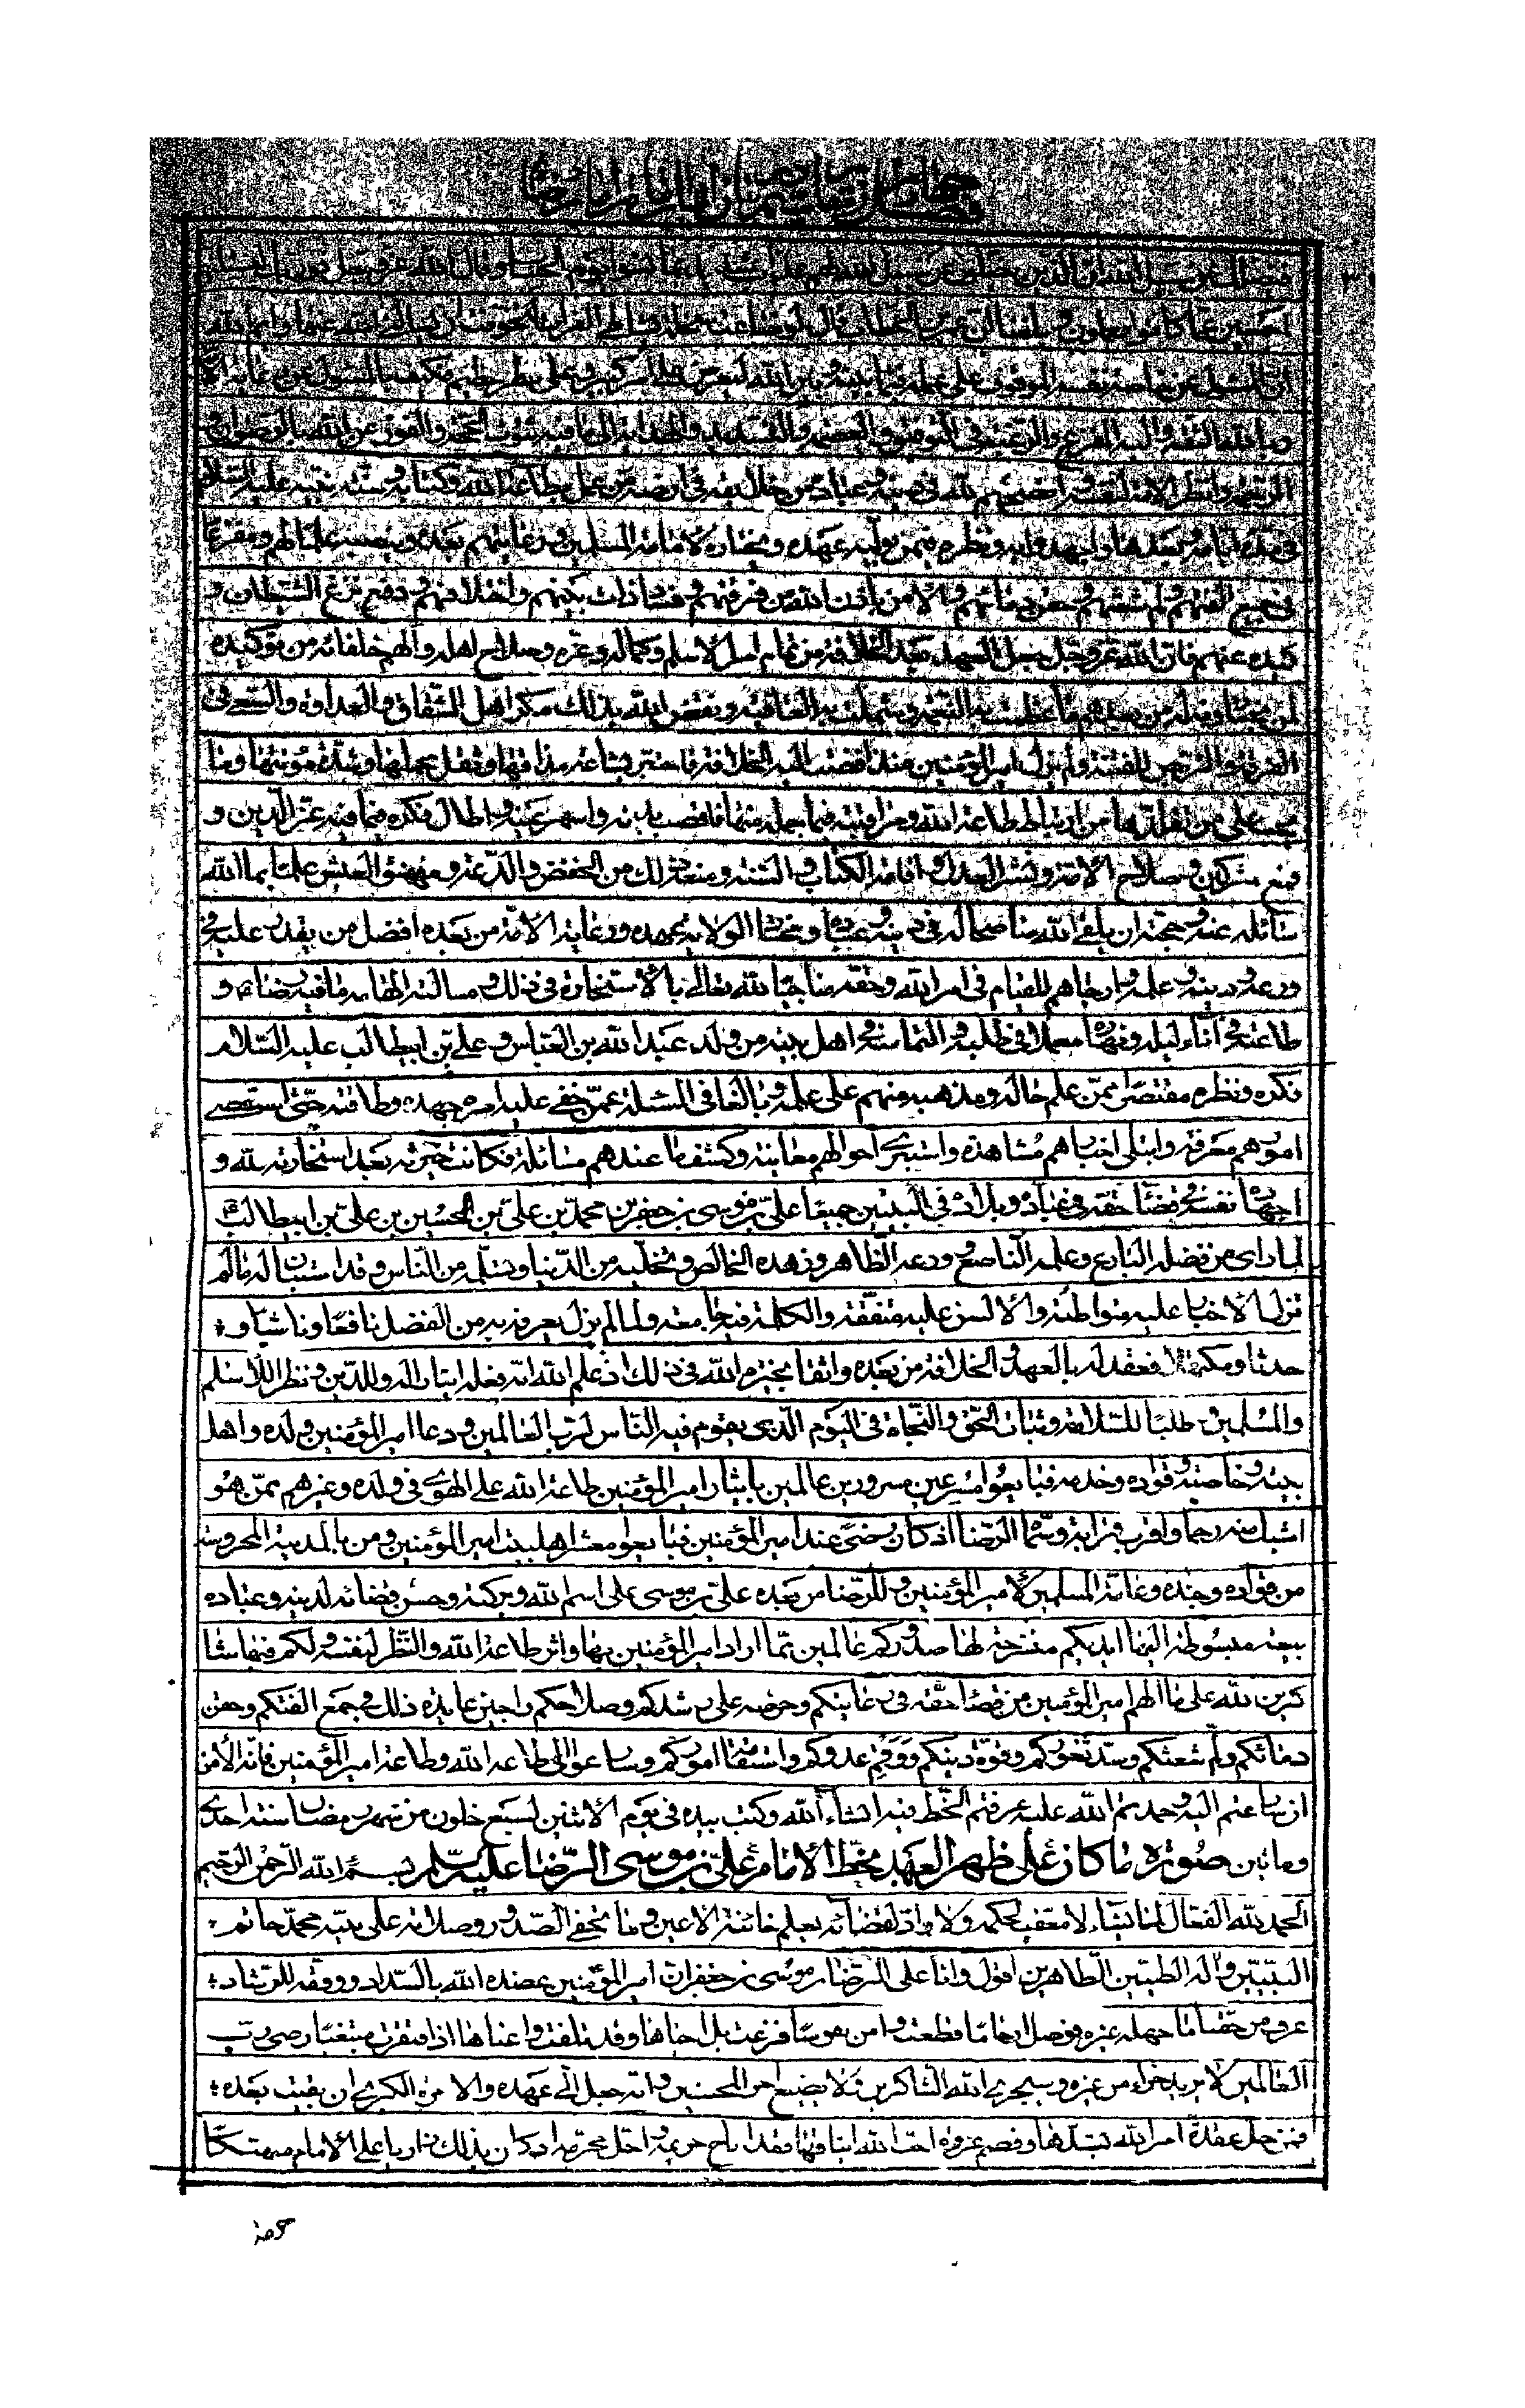 فيضلك عن سبيل الله ان الذين يضلون عن سبيل الله لهم عذاب شديد بما نسوا يوم الحساب وقال الله عز وجل فوربك لنسئلنهم
اجمعين عما كانوا يعملون و بلغنا ان عمر بن الخطاب قال لو ضاعت سخلة بشاطئ الفرات لتخوفت ان يسألني الله عنها وايم الله
ان المسئول عن خاصة نفسه الموقوف على عمله فيما بينه وبين الله ليعرض على امر كبير وعلى خطر عظيم فكيف بالمسئول عن رعاية الامة
وبالله الثقة واليه المفزع والرغبة في التوفيق و العصمة والتسديد والهداية الى ما فيه ثبوت الحجة والفوز من الله بالرضوان و
الرحمة وانظر الامة لنفسه انصحهم لله في دينه و عباده من خلائفه في ارضه من عمل بطاعة الله وكتابه وسنة نبيه عليه السلام
في مدة ايامه و بعدها واجهد رايه ونظره فيمن يوليه عهده ويختاره لامامة المسلمين و رعايتهم بعده وينصبه علما لهم ومفزعا
في جمع الفتهم و لم شعثهم و حقن دمائهم و الامن باذن الله من فرقتهم و فساد ذات بينهم واختلافهم و دفع نزغ الشيطان و
كيده عنهم فان الله عز وجل جعل العهد بعد الخلافة من تمام امر الاسلام وكماله و عزه وصلاح اهله والهم خلفائه من توكيده
لمن يختارونه له من بعدهم ما عظمت به النعمة وشملت به العافية و نقض الله بذلك مكر اهل الشقاق والعداوة والسعي في
الفرقة والتربص للفتنة ولم يزل امير المؤمنين منذ افضت اليه الخلافة فاختبر بشاعة مذاقها و ثقل محملها وشدة مؤنتها وما
يجب على من تقلدها من ارتباط طاعة الله ومراقبته فيما حمله منها فانصب بدنه واسهر عينه و اطال فكره فيما فيه عز الدين و
قمع المشركين و صلاح الامة ونشر العدل و اقامة الكتاب و السنة ومنعه ذلك من الخفض والدعة و مهنئ العيش علما بما الله
سائله عنه ومحبة ان يلقى الله مناصحا له في دينه و عباده ومختارا لولاية عهده ورعاية الامة من بعده افضل من يقدر عليه في
ورعه و دينه و علمه وارجاهم للقيام في امر الله و حقه مناجيا لله تعالى بالاستخارة في ذلك و مسالته الهامه ما فيه رضائه و
طاعته في اناء ليله ونهاره معملا في طلبه و التماسه في اهل بيته من ولد عبد الله بن العباس و علي بن ابيطالب عليه السلام
فكره ونظره مقتصرا ممن علم حاله ومذهبه منهم على علمه و بالغا في المسئلة عمن خفي عليه امره جهده وطاقته حتى استقصى
امورهم معرفة وابتلى اخبارهم مشاهدة واستبرى احوالهم معاينة و كشف ما عندهم مسائلة فكانت خيرته بعد استخارته لله و
اجهاده نفسه في قضاء حقه في عباده و بلاده في البيتين جميعا علي بن موسى بن جعفر بن محمد بن علي بن الحسين بن علي بن ابيطالب ع
لما راى من فضله البارع و علمه الناصع و ورعه الظاهر وزهده الخالص و تخليه من الدنيا و تسلمه من الناس وقد استبان له ما لم
تزل الاخبار عليه متواطئة والالسن عليه متفقة والكلمة فيه جامعة ولما لم يزل يعرفه به من الفضل نافعا وناشيا و
حدثا ومكتهلا فعقد له بالعهد و الخلافة من بعده واثقا بخيرة الله في ذلك اذ علم الله انه فعله ايثارا له و للدين و نظرا للاسلام
والمسلمين و طلبا للسلامة وثبات الحق و النجاة في اليوم الذي يقوم فيه الناس لرب العالمين و دعا امير المؤمنين ولده واهل
بيته و خاصته و قواده وخدمه فبايعوا مسرعين مسرورين عالمين بايثار امير المؤمنين طاعة الله على الهوى في ولده وغيرهم ممن هو
اشبك منه رحما واقرب قرابة وسماه الرضا اذ كان رضى عند امير المؤمنين فبايعوا معشر اهلبيت امير المؤمنين ومن بالمدينة المحروسة
من قواده وجنده و عامة المسلمين لامير المؤمنين و للرضا من بعده علي بن موسى على اسم الله وبركته وحسن قضائه لدينه وعباده
بيعة مبسوطة اليها ايديكم منشرحة لها صدوركم عالمين بما اراد امير المؤمنين بها واثر طاعة الله والنظر لنفسه ولكم فيها شا
كرين لله على ما الهم امير المؤمنين من قضاء حقه في رعايتكم وحرصه على رشدكم وصلاحكم راجين عايدة ذلك في جمع الفتكم وحقن
دمائكم ولم شعثكم وسد ثغوركم وقوة دينكم ووقم عدوكم واستقامة اموركم وسارعوا الى طاعة الله وطاعة امير المؤمنين فانه الامن
ان سارعتم اليه وحمدتم الله عليه عرفتم الحظ فيه انشاء الله وكتب بيده في يوم الاثنين لسبع خلون من شهر رمضان سنة احدى
ومائتين صورة ما كان على ظهر العهد بخط الامام علي بن موسى الرضا عليه السلم بسم الله الرحمن الرحيم
الحمد لله الفعال لما يشاء لا معقب لحكمه ولا راد لقضائه يعلم خائنة الاعين و ما تخفي الصدور وصلاته على نبيه محمد خاتم
النبيين واله الطيبين الطاهرين اقول وانا علي الرضا بن موسى بن جعفر ان امير المؤمنين عضده الله بالسداد ووفقه للرشاد
عرف من حقنا ما جهله غيره فوصل ارحاما قطعت و امن نفوسا فزعت بل احياها وقد تلفت و اغناها اذا افتقرت مبتغيا رضى رب
العالمين لا يريد جزاء من غيره وسيجزي الله الشاكرين ولا يضيع اجر المحسنين وانه جعل الي عهده والامرة الكبرى ان بقيت بعده
فمن حل عقدة امر الله بشدها وفصم عروة احب الله ايثاقها فقد اباح حريمه و احل محرمه اذ كان بذلك زاريا على الامام منهتكا